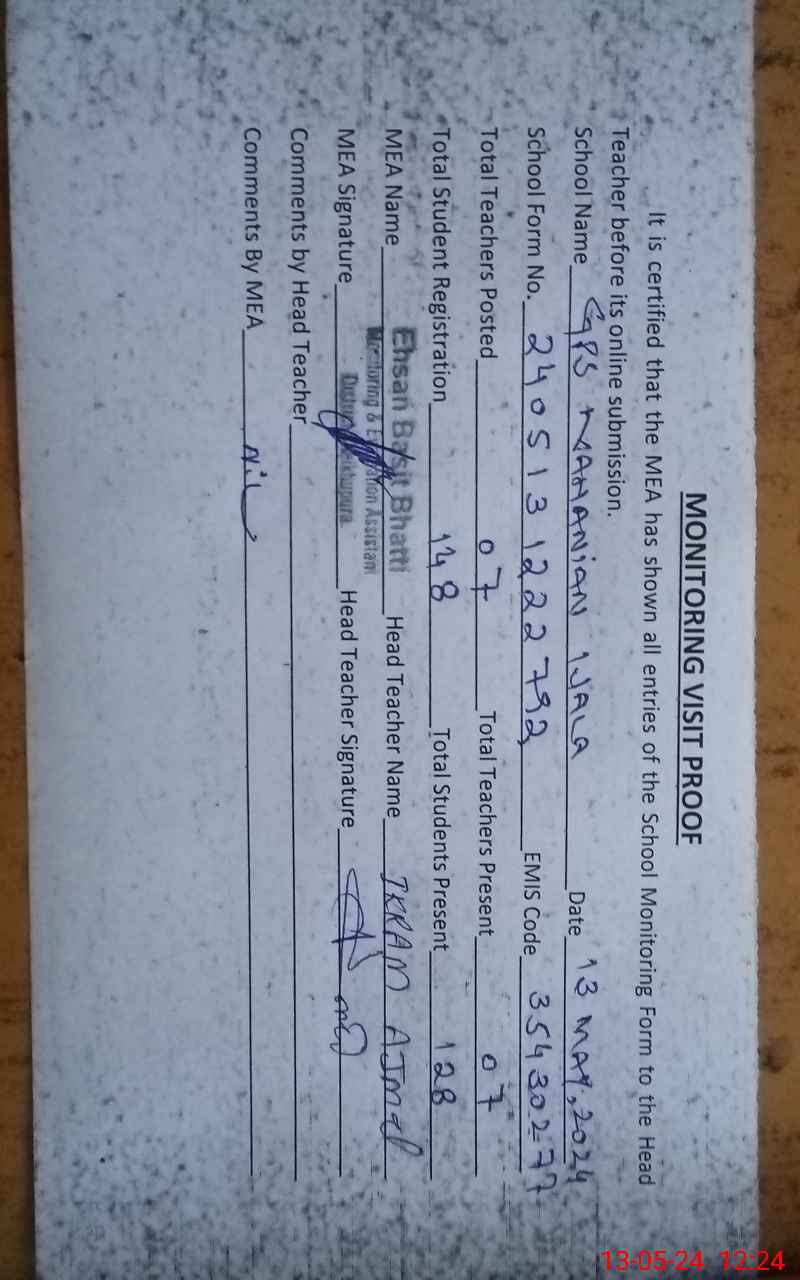 MONITORING VISIT PROOF
It is certified that the MEA has shown all entries of the School Monitoring Form to the Head
Teacher before its online submission.
School Name GPS MAHANIAN WALA Date 13 MAY, 2024
School Form No. 240513122279 2 EMIS Code 35430277
Total Teachers Posted 07 Total Teachers Present 07
Total Student Registration 148 Total Students Present 128
MEA Name Ehsan Basit Bhatti Head Teacher Name IKRAM AJMAL
Monitoring & Assistant
MEA Signature District Head Teacher Signature
Comments by Head Teacher
Comments By MEA Nil
13-05-24 12:24